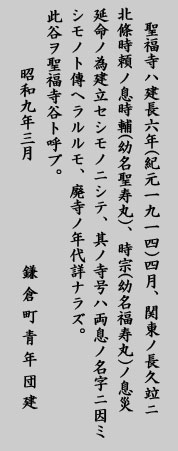 聖福寺ハ建長六年(紀元一九一四)四月、関東ノ長久竝ニ
北條時頼ノ息時輔(幼名聖寿丸)、時宗(幼名福寿丸)ノ息災
延命ノ為建立セシモノニシテ、其ノ寺号ハ両息ノ名字ニ因ミ
シモノト傳ヘラルルモ、廃寺ノ年代詳ナラズ。
此谷ヲ聖福寺谷ト呼ブ。
昭和九年三月
鎌倉町青年団建